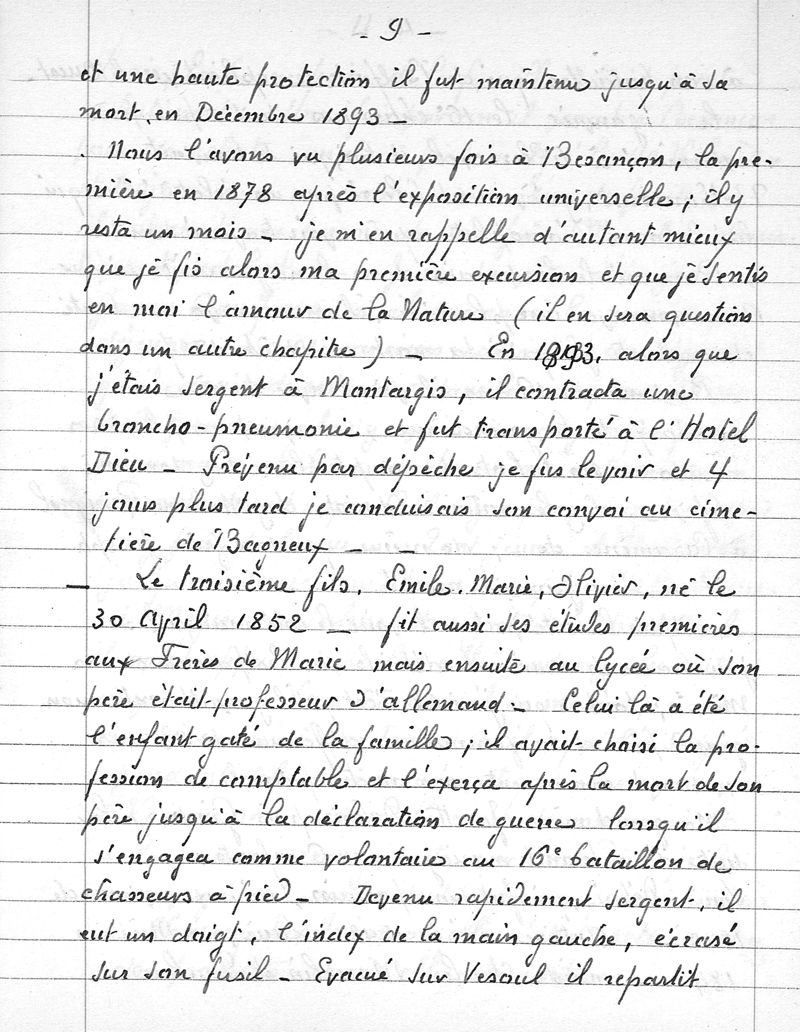 - 9 -
et une haute protection il fut maintenu jusqu'à sa
mort, en Décembre 1893 -
. Nous l'avons vu plusieurs fois à Besançon, la pre-
mière en 1878 après l'exposition universelle ; il y
resta un mois - je m'en rappelle d'autant mieux
que je fis alors ma première excursion et que je sentis
en moi l'amour de la Nature (il en sera question
dans un autre chapitre) - En 1893, alors que
j'étais sergent à Montargis, il contracta une
broncho-pneumonie et fut transporté à l'Hotel
Dieu - Prévenu par dépèche je fus le voir et 4
jours plus tard je conduisais son convoi au cime-
tière de Bagneux - -
- Le troisième fils, Emile. Marie, Olivier, né le
30 April 1852 - fit aussi ses études premières
aux Frères de Marie mais ensuite au lycée où son
père était professeur d'allemand - Celui là a été
l'enfant gaté de la famille ; il avait choisi la pro-
fession de comptable et l'exerça après la mort de son
père jusqu'à la déclaration de guerre lorsqu'il
s'engagea comme volontaire au 16e bataillon de
chasseurs à pied - Devenu rapidement sergent, il
eut un doigt, l'index de la main gauche, écrasé
sur son fusil - Evacué sur Vesoul il repartit